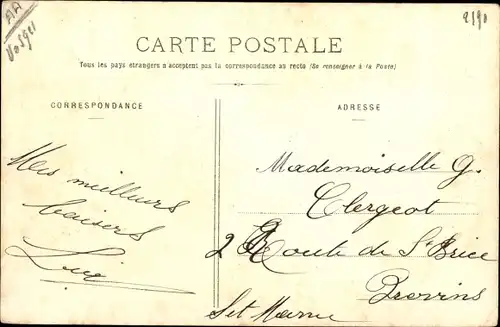 AA
Vosges
2590
CARTE POSTALE
Tous les pays étrangers n'acceptent pas la correspondance au recto (Se renseigner à la Poste)
CORRESPONDANCE
Mes meilleurs
baisers
ADRESSE
Mademoiselle G.
Clergeot
2 Route de St Brice
Provins
Set Marne